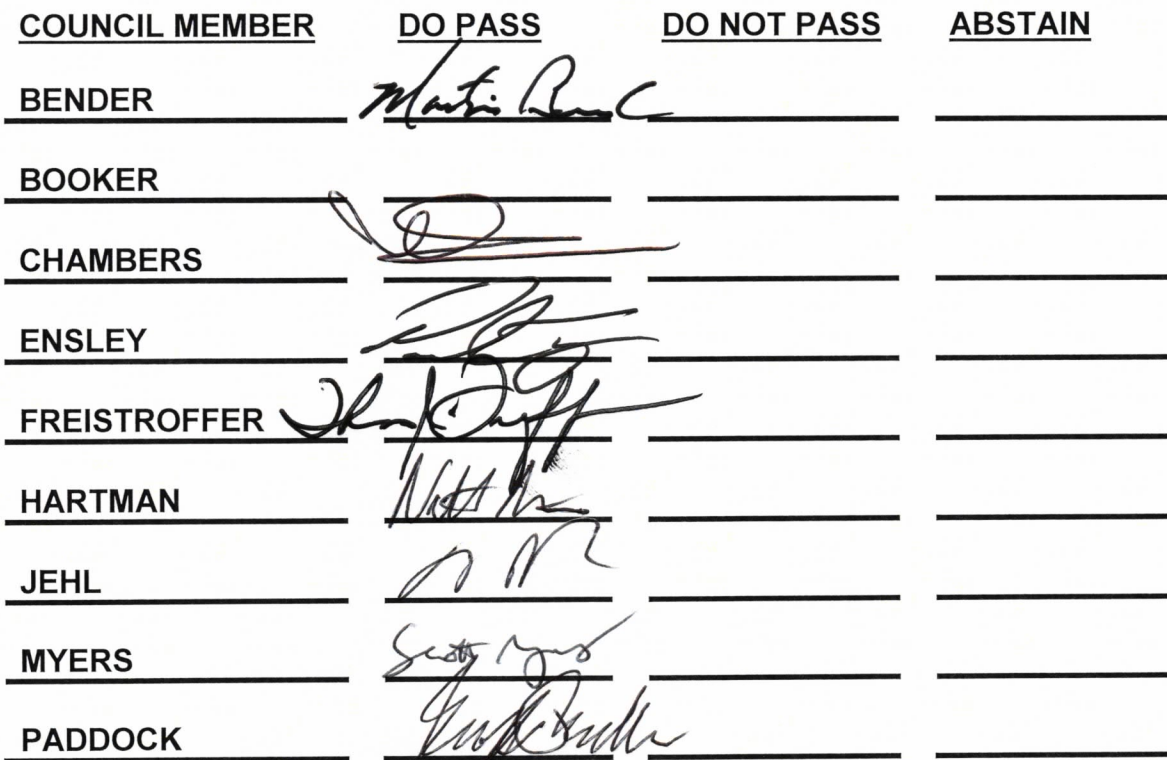 COUNCIL MEMBER DO PASS DO NOT PASS ABSTAIN
BENDER Martin Bender
BOOKER
CHAMBERS
ENSLEY
FREISTROFFER
HARTMAN
JEHL
MYERS Scott Myers
PADDOCK